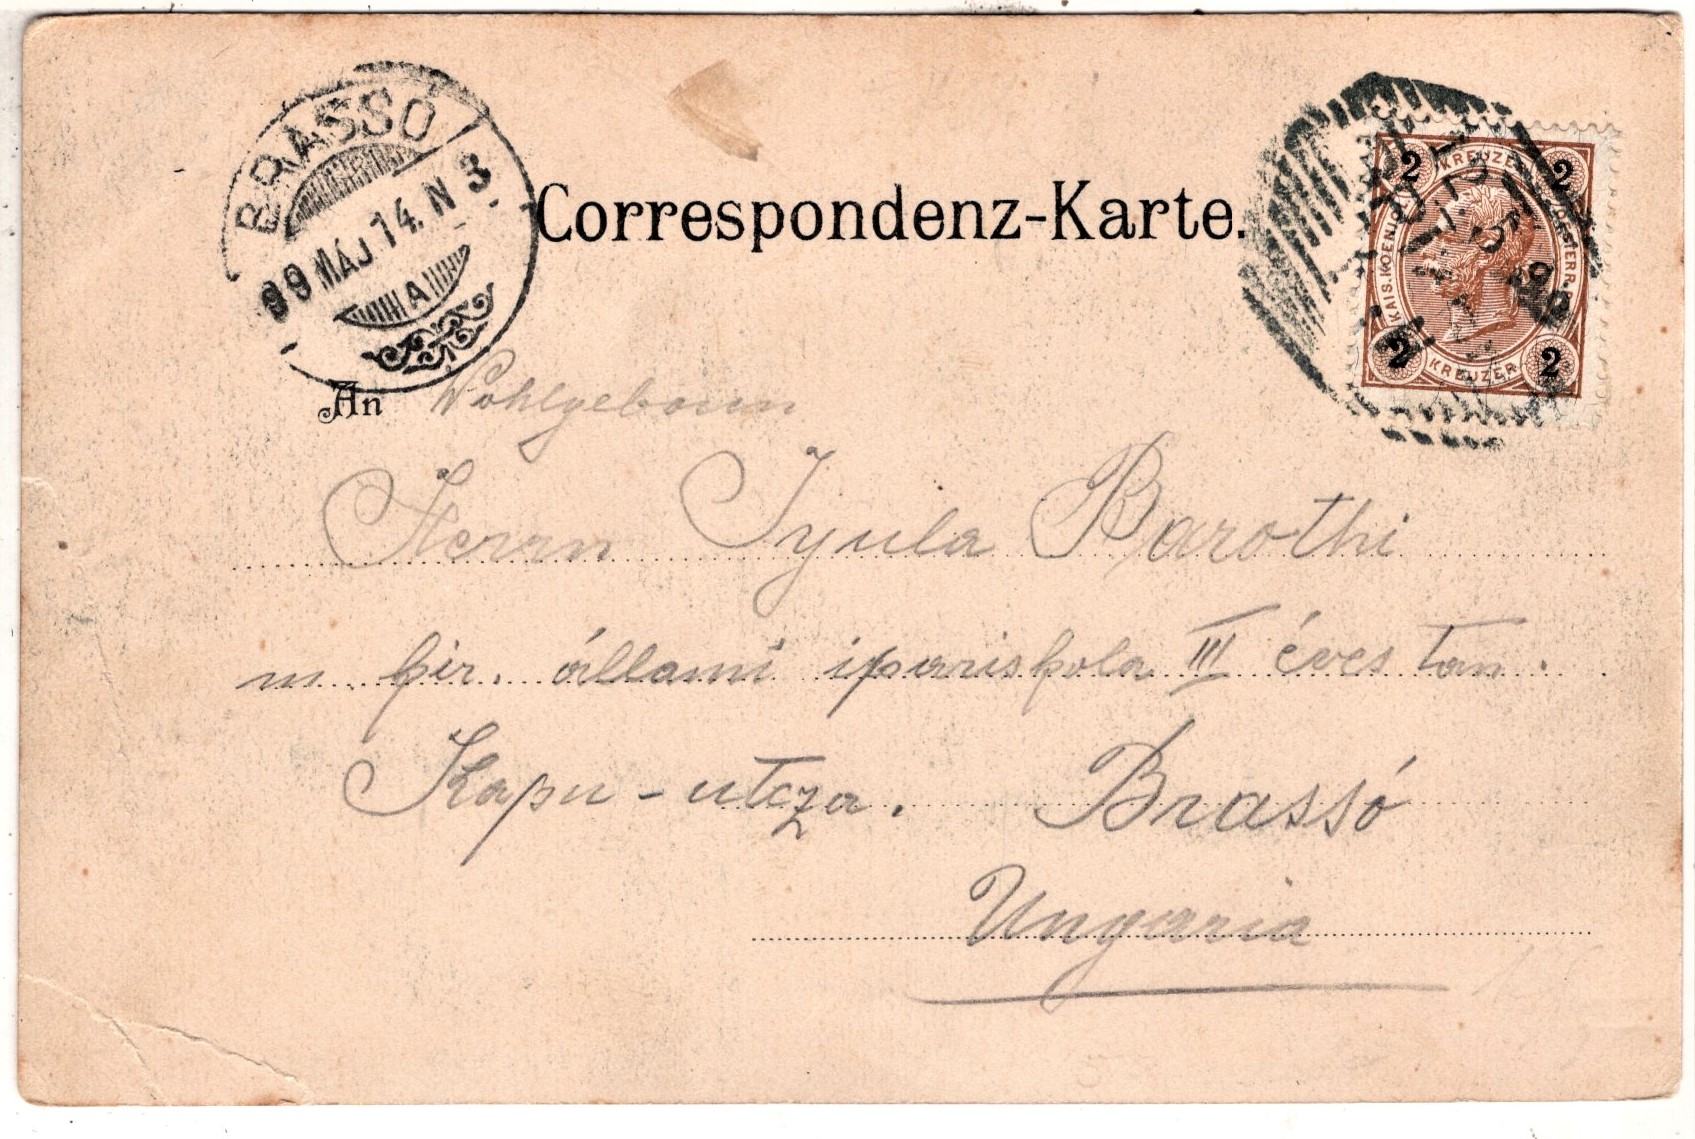 BRASSÓ
99 MÁJ 14. N 3
A
Correspondenz-Karte.
2 KREUZER 2
KAIS. KOENIGL. OESTERR.
2 KREUZER 2
An Wohlgeborn
Herrn Gyula Barothi
m. kir. állami ipariskola III éves tan.
Kapu-utcza. Brassó
Ungaria